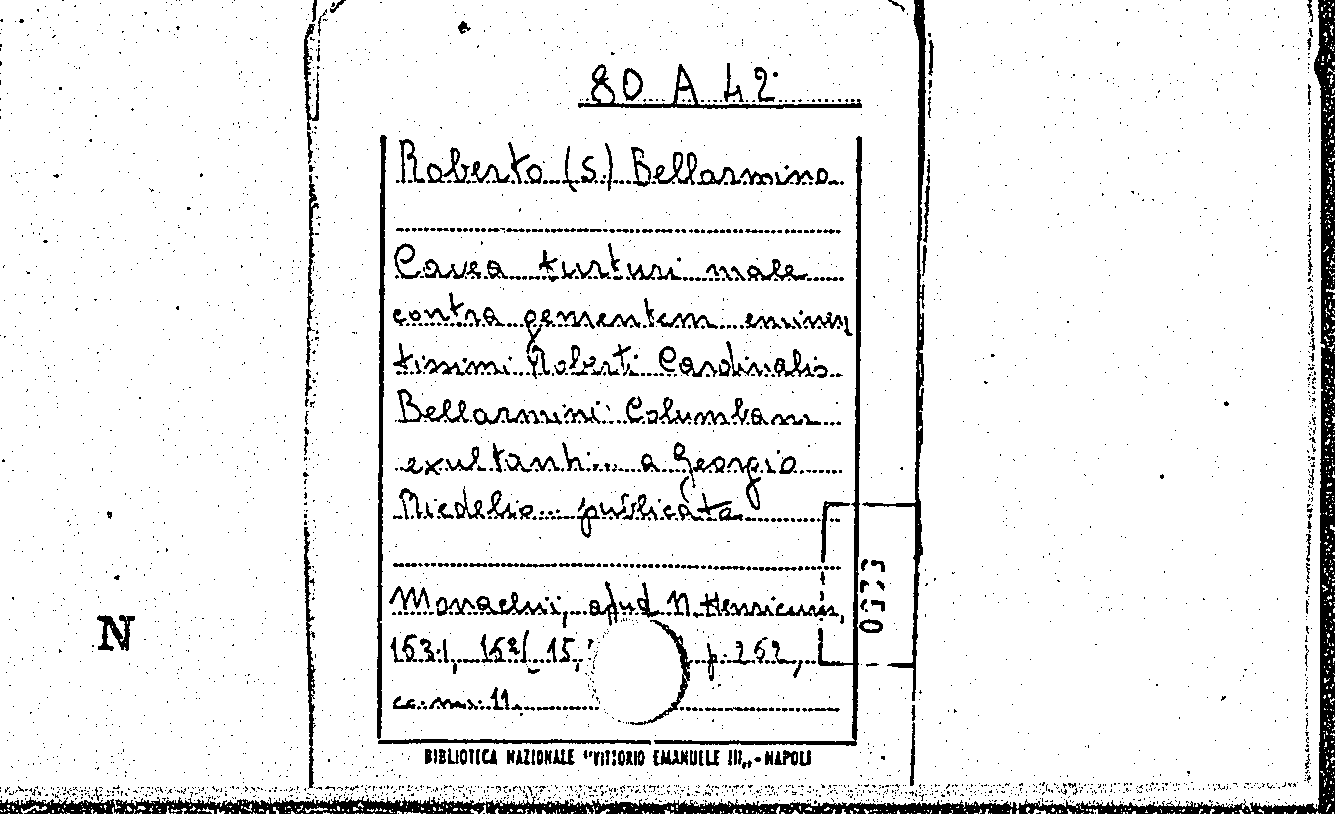 80 A 42
Roberto (S.) Bellarmino
Cavea turturi male
contra gementem eminen
tissimi Roberti Cardinalis
Bellarmini Columbam
exultanti... a Georgio
Riedelio... publicata
Monachii, apud N. Henricum,
1631, 16º, 15, p. 262,
cc. nn. 11.
0533
N
BIBLIOTECA NAZIONALE "VITTORIO EMANUELE III„ - NAPOLI